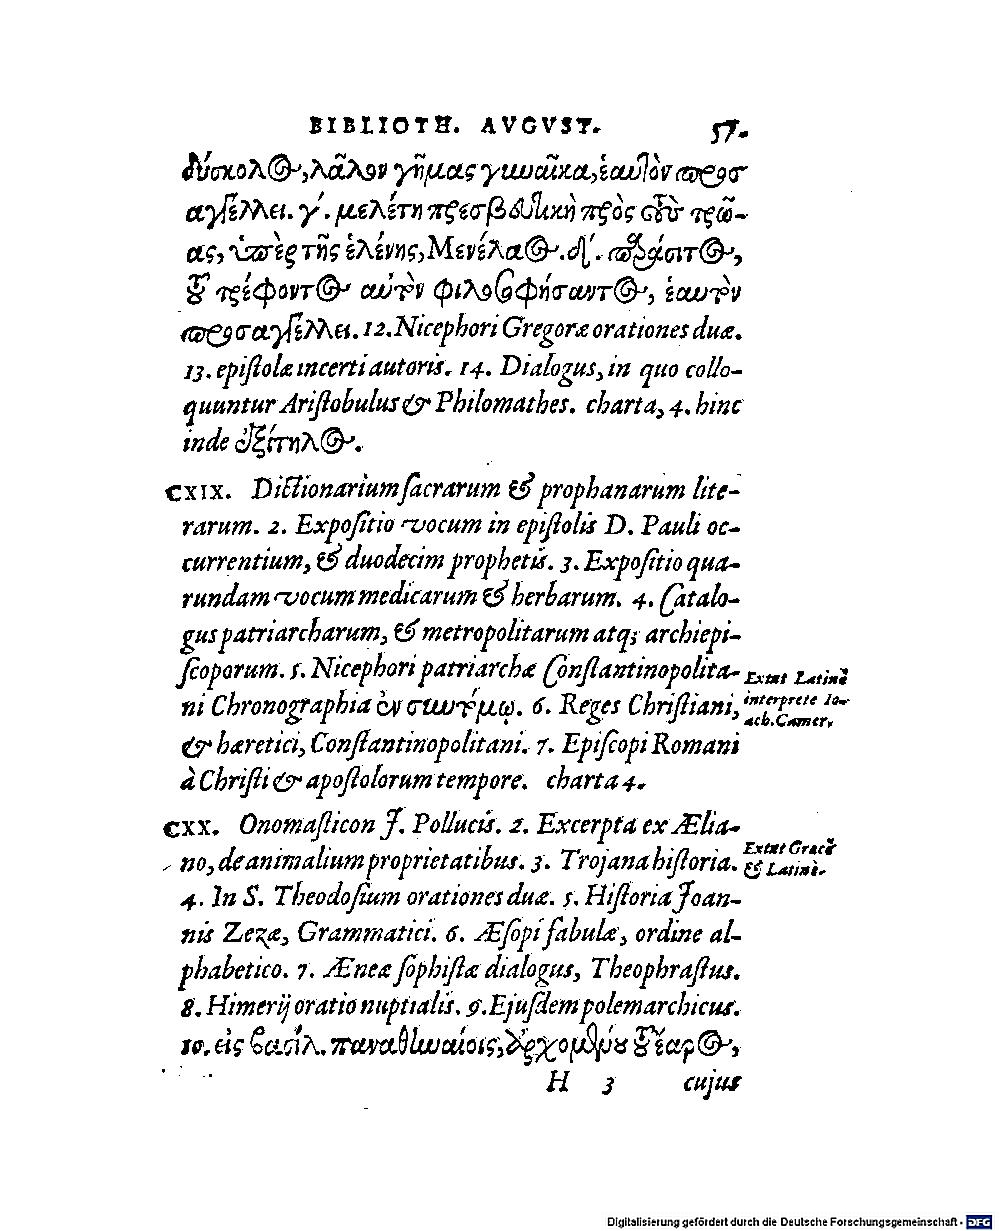 BIBLIOTH. AVGVST. 57.
δύσκολος, λάλον γῆμας γυναῖκα, ἑαυτὸν προσ
αγγέλλει. γ΄. μελέτη πρεσβευτικὴ πρὸς τοὺς τρῶ-
ας, ὑπὲρ τῆς ἑλένης, Μενέλαος. δ΄. παράσιτος,
τοῦ τρέφοντος αὐτὸν φιλοσοφήσαντος, ἑαυτὸν
προσαγγέλλει. 12. Nicephori Gregoræ orationes duæ.
13. epiſtolæ incerti autoris. 14. Dialogus, in quo collo-
quuntur Ariſtobulus & Philomathes. charta, 4. hinc
inde ἐξίτηλος.
CXIX. Dictionarium ſacrarum & prophanarum lite-
rarum. 2. Expoſitio vocum in epiſtolis D. Pauli oc-
currentium, & duodecim prophetis. 3. Expoſitio qua-
rundam vocum medicarum & herbarum. 4. Catalo-
gus patriarcharum, & metropolitarum atq; archiepi-
ſcoporum. 5. Nicephori patriarchæ Conſtantinopolita-
ni Chronographia ἐν συντόμῳ. 6. Reges Chriſtiani,
& hæretici, Conſtantinopolitani. 7. Epiſcopi Romani
à Chriſti & apoſtolorum tempore. charta 4.
Extat Latinè
interprete Io-
ach. Camer.
CXX. Onomaſticon J. Pollucis. 2. Excerpta ex Ælia-
no, de animalium proprietatibus. 3. Trojana hiſtoria.
4. In S. Theodoſium orationes duæ. 5. Hiſtoria Joan-
nis Zezæ, Grammatici. 6. Æſopi fabulæ, ordine al-
phabetico. 7. Æneæ ſophiſtæ dialogus, Theophraſtus.
8. Himerij oratio nuptialis. 9. Ejuſdem polemarchicus.
10. εἰς βασίλ. παναθηναίοις, ἀρχομένου τοῦ ἔαρος,
Extat Græcè
& Latinè.
H 3 cujus
Digitalisierung gefördert durch die Deutsche Forschungsgemeinschaft - DFG